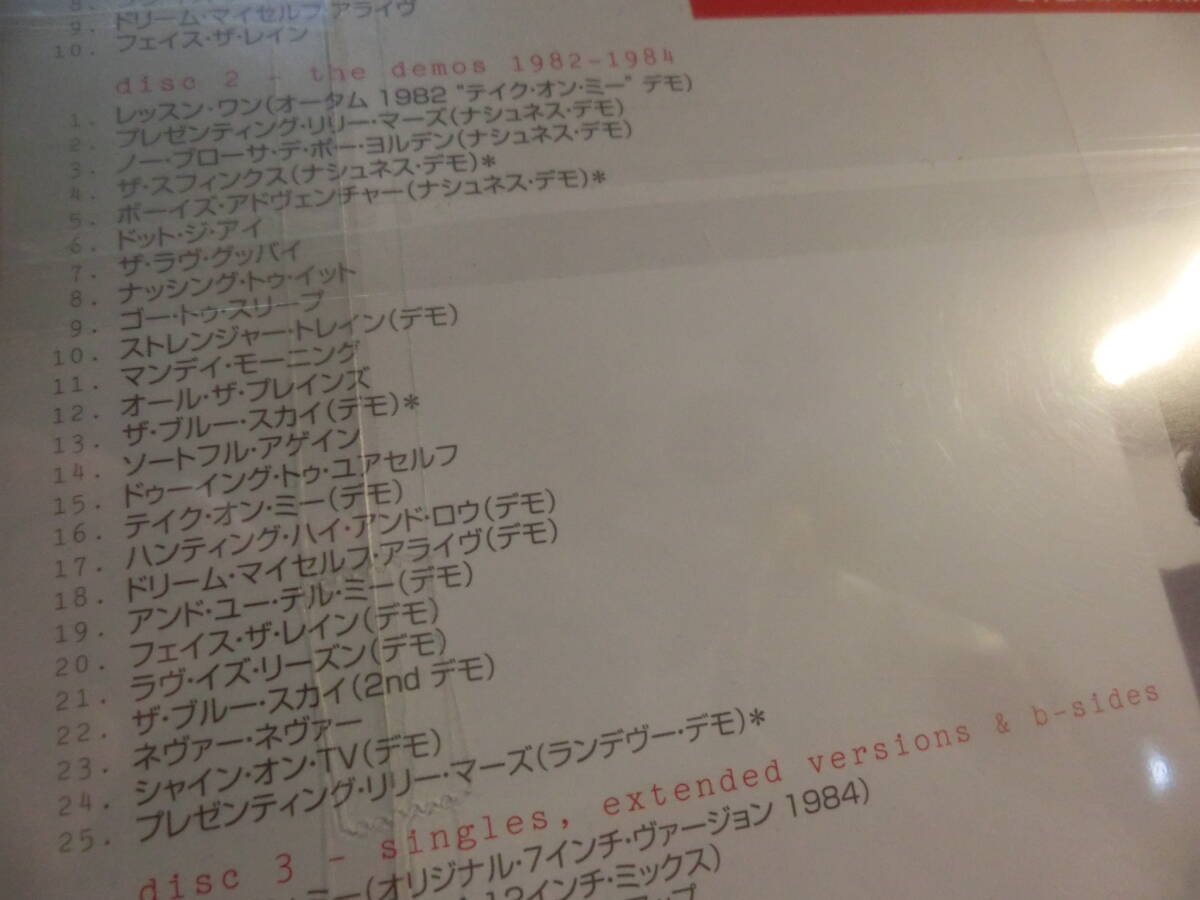 9. ドリーム・マイセルフ・アライヴ
10. フェイス・ザ・レイン
disc 2 - the demos 1982-1984
1. レッスン・ワン(オータム 1982 "テイク・オン・ミー" デモ)
2. プレゼンティング・リリー・マーズ(ナシュネス・デモ)
3. ノー・ブローサ・デ・ポー・ヨルデン(ナシュネス・デモ)
4. ザ・スフィンクス(ナシュネス・デモ)*
5. ボーイズ・アドヴェンチャー(ナシュネス・デモ)*
6. ドット・ジ・アイ
7. ザ・ラヴ・グッバイ
8. ナッシング・トゥ・イット
9. ゴー・トゥ・スリープ
10. ストレンジャー・トレイン(デモ)
11. マンデイ・モーニング
12. オール・ザ・プレインズ
13. ザ・ブルー・スカイ(デモ)*
14. ソートフル・アゲイン
15. ドゥーイング・トゥ・ユアセルフ
16. テイク・オン・ミー(デモ)
17. ハンティング・ハイ・アンド・ロウ(デモ)
18. ドリーム・マイセルフ・アライヴ(デモ)
19. アンド・ユー・テル・ミー(デモ)
20. フェイス・ザ・レイン(デモ)
21. ラヴ・イズ・リーズン(デモ)
22. ザ・ブルー・スカイ(2nd デモ)
23. ネヴァー・ネヴァー
24. シャイン・オン・TV(デモ)
25. プレゼンティング・リリー・マーズ(ランデヴー・デモ)*
disc 3 - singles, extended versions & b-sides
ミー(オリジナル・7インチ・ヴァージョン 1984)
12インチ・ミックス)